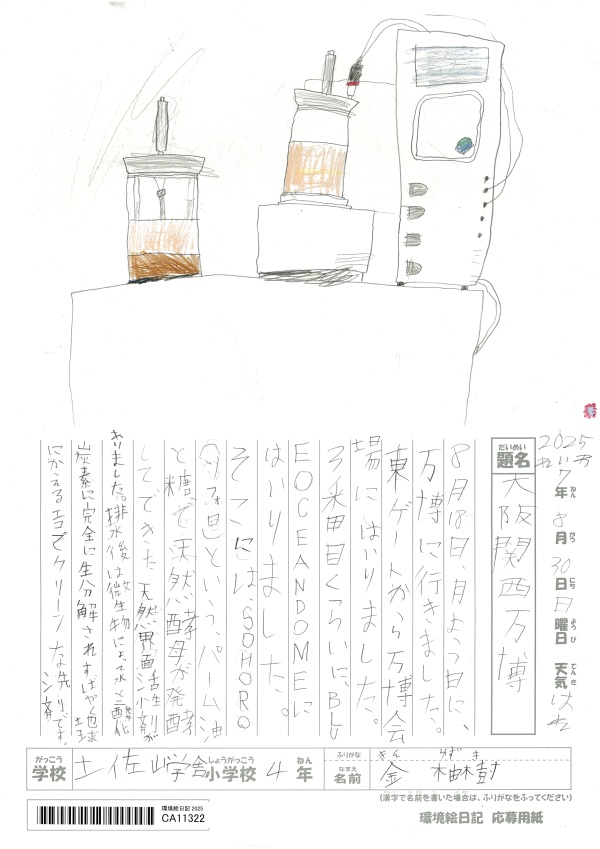 だいめい
題名
大阪関西万博
2025
7年 8月 30日 日曜日 天気 はれ
ねん がつ にち ようび てんき
8月18日、月よう日に、
万博に行きました。
東ゲートから万博会
場にはいりました。
3番目くらいに、BLU
EOCEANDOMEに
はいりました。
そこには、SOHORO
という、パーム油
と糖で天然酵母が発酵
してできた天然界面活性剤が
ありました。排水後は微生物によって水と二酸化
炭素に完全に生分解されすばやく地球
にかえるエコでクリーンな洗剤です。
がっこう
学校
土佐山学舎
しょうがっこう
小学校
4
ねん
年
ふりがな
きん ゆずき
なまえ
名前
金 柚樹
(漢字で名前を書いた場合は、ふりがなをふってください)
環境絵日記 2025
CA11322
環境絵日記 応募用紙